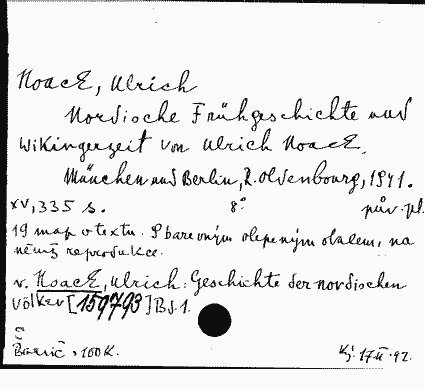 Noack, Ulrich
Nordische Frühgeschichte und
Wikingerzeit von Ulrich Noack.
München und Berlin, R. Oldenbourg, 1941.
XV, 335 s. 8° pův. pl.
19 map v textu. S barevným olepeným obalem, na
němž reprodukce.
v. Noack, Ulrich: Geschichte der nordischen
Völker [159793] Bd. 1.
100 K. 17.II.42.